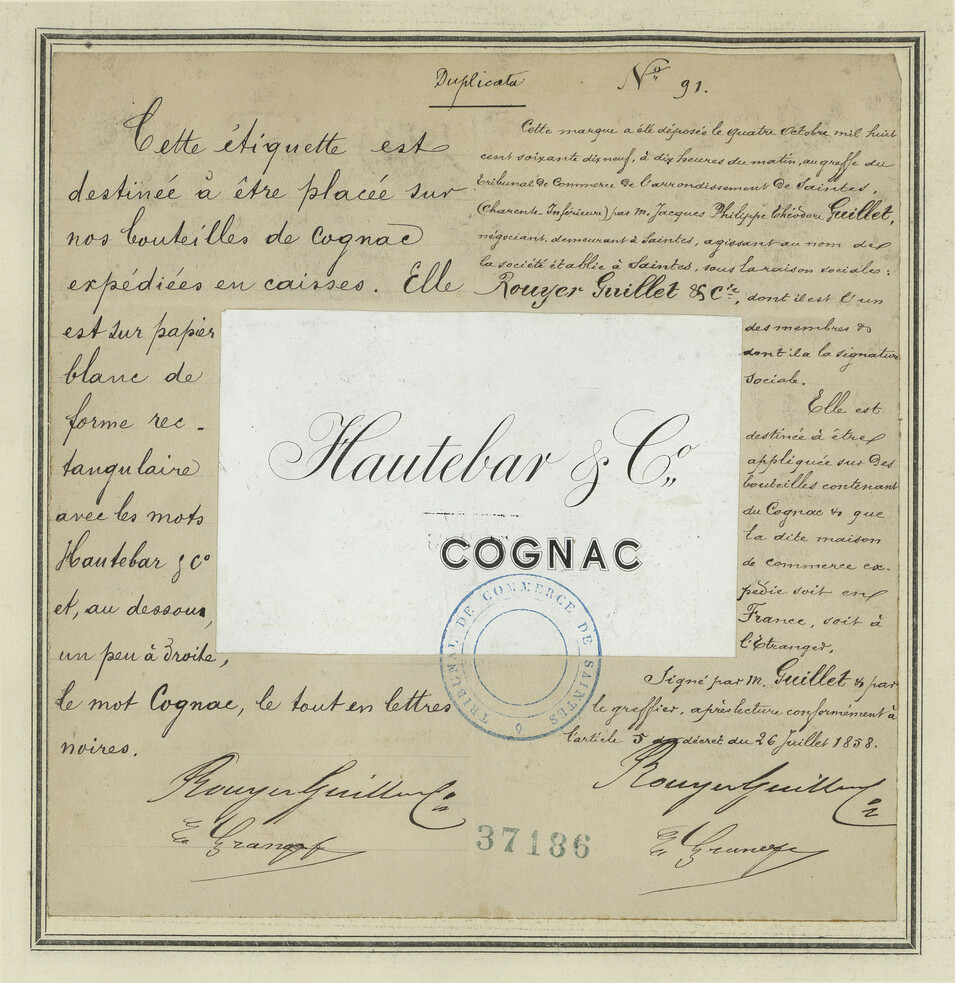 Duplicata
No 91.
Cette étiquette est
destinée à être placée sur
nos bouteilles de Cognac
expédiées en caisses. Elle
est sur papier
blanc de
forme rec-
tangulaire
avec les mots
Hautebar & Co
et, au dessous,
un peu à droite,
le mot Cognac, le tout en lettres
noires.
Rouyer Guillet & Cie
Cette marque a été déposée le quatre Octobre mil huit
cent soixante dix neuf, à dix heures du matin, au greffe du
Tribunal de Commerce de l'arrondissement de Saintes,
(Charente-Inférieure) par M. Jacques Philippe Théodore Guillet,
négociant, demeurant à Saintes, agissant au nom de
la société établie à Saintes, sous la raison sociale:
Rouyer Guillet & Cie, dont il est l'un
des membres &
dont il a la signature
sociale.
Elle est
destinée à être
appliquée sur des
bouteilles contenant
du Cognac & que
la dite maison
de commerce ex-
pédie soit en
France, soit à
l'Etranger.
Signé par M. Guillet & par
le greffier, après lecture conformément à
l'article 5 du décret du 26 Juillet 1858.
Rouyer Guillet & Cie
Hautebar & Co
COGNAC
TRIBUNAL DE COMMERCE DE SAINTES
37186